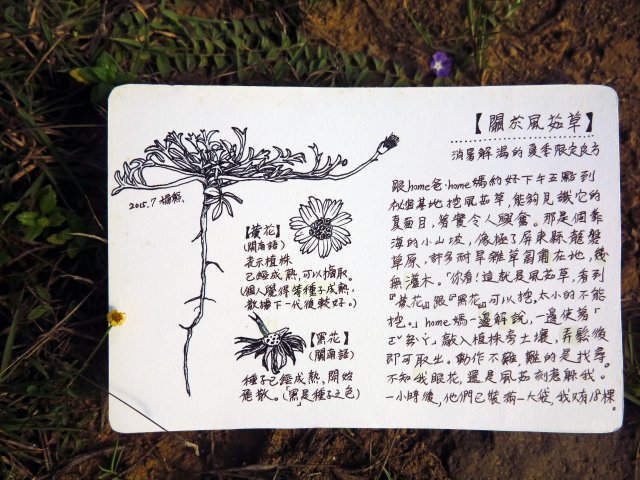 【關於風茹草】
消暑解渴的夏季限定良方
跟home爸、home媽約好下午五點到
秘密基地挖風茹草，能夠見識它的
真面目，著實令人興奮。那是個靠
海的小山坡，像極了屏東縣龍磐
草原，許多耐旱雜草匍匐在地，幾
無灌木。「你看！這就是風茹草，看到
『黃花』跟『黑花』可以挖，太小的不能
挖。」home媽一邊解說，一邊使著
敲入植株旁土壤，弄鬆後
即可取出。動作不難，難的是找尋。
不知我眼花，還是風茹刻意躲我。
一小時後，他們已裝滿一大袋，我只有18棵。
2015.7 描繪.
【黃花】
(閩南語)
表示植株
已經成熟，可以摘取。
(個人覺得等種子成熟，
散播下一代後較好。)
【黑花】
(閩南語)
種子已經成熟，開始
飛散。(黑是種子之色)